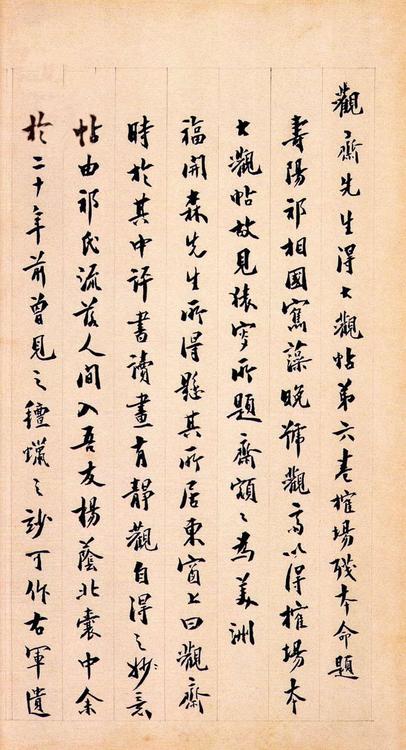 觀齋先生得大觀帖第六卷榷場殘本命題
壽陽祁相國寯藻晚號觀齋以得榷場本
大觀帖故見猿叟所題齋額々為美洲
福開森先生所得懸其所居東窗上曰觀齋
時於其中評書讀畫有靜觀自得之妙意
帖由祁氏流落人間入吾友楊蔭北囊中余
於二十年前曾見之氈蠟之妙可作右軍遺